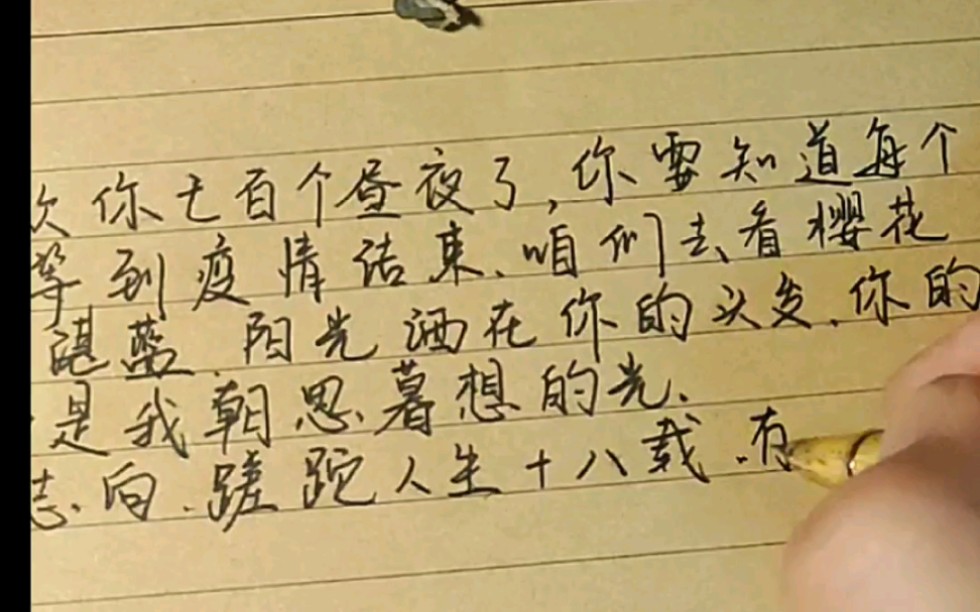 欠你七百个昼夜了,你要知道每个
等到疫情结束、咱们去看樱花
湛蓝、阳光洒在你的头发、你的
是我朝思暮想的光、
志向、蹉跎人生十八载、有